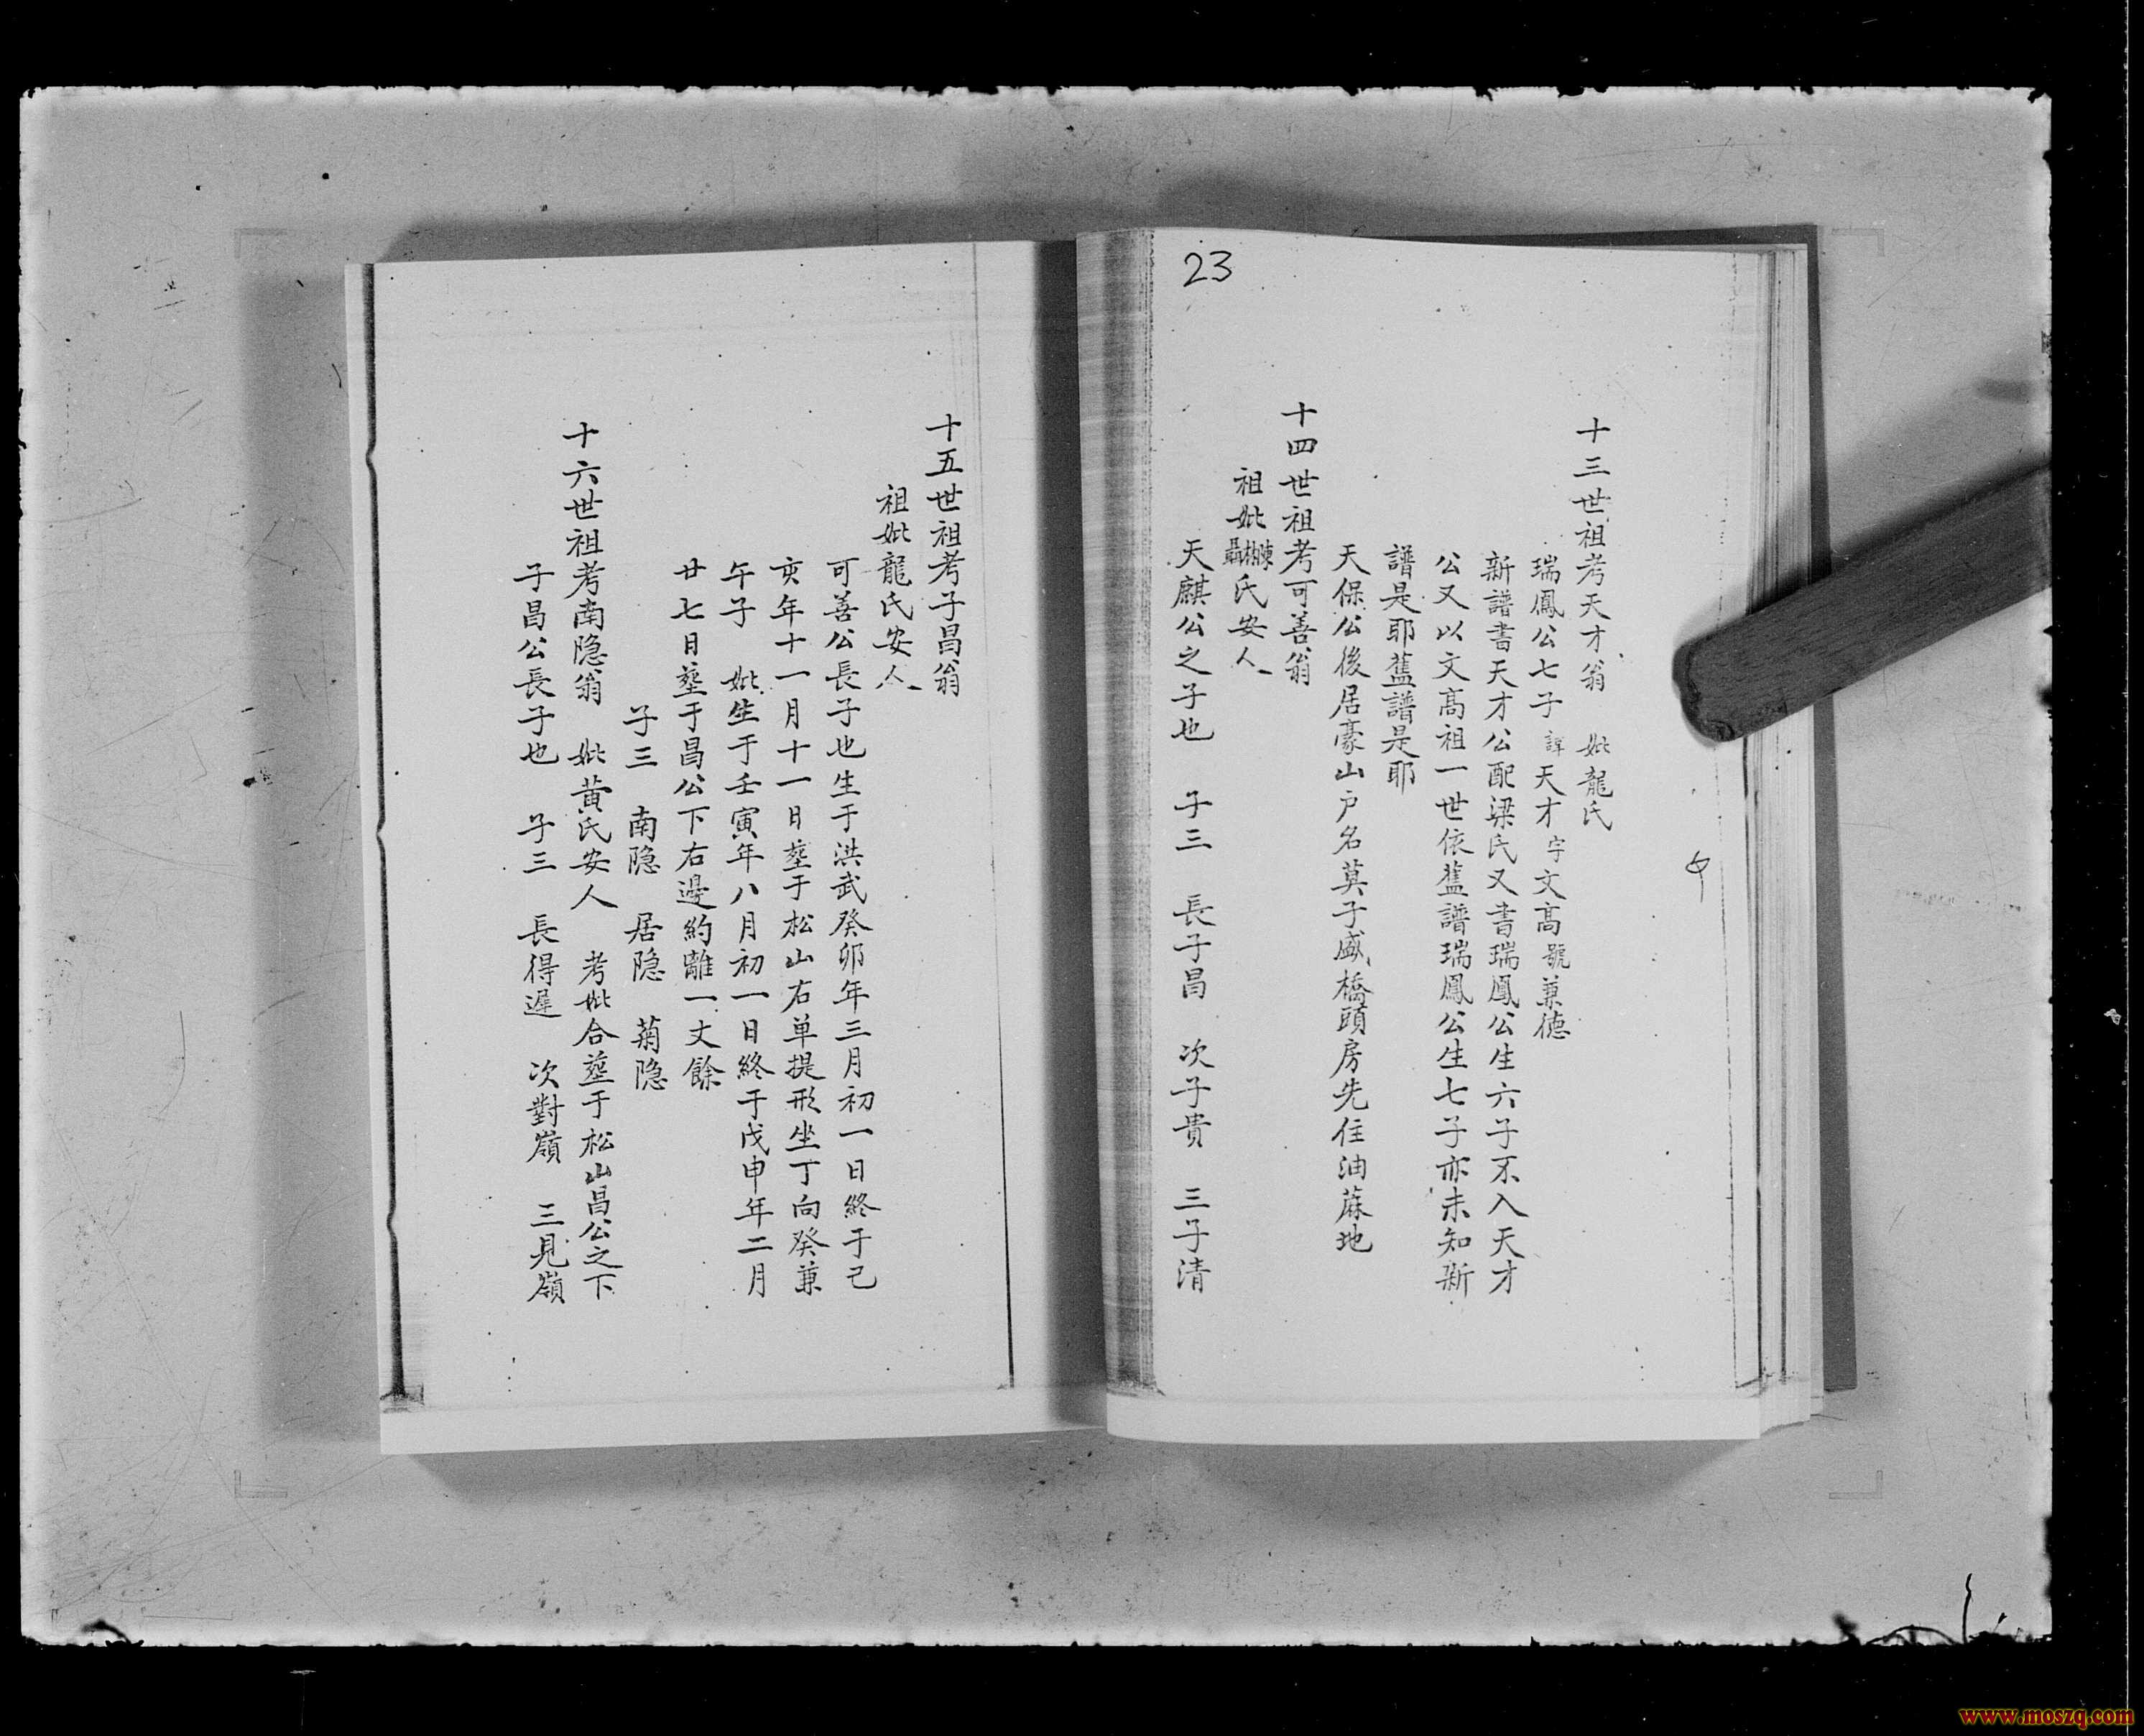 23
十三世祖考天才翁 妣龍氏
瑞鳳公七子諱天才字文高號兼德
新譜書天才公配梁氏又書瑞鳳公生六子不入天才
公又以文高祖一世依舊譜瑞鳳公生七子亦未知新
譜是耶舊譜是耶
天保公後居豪山戶名莫子盛橋頭房先住油蔴地
十四世祖考可善翁
祖妣陳林聶氏安人
天麒公之子也 子三 長子昌 次子貴 三子清
十五世祖考子昌翁
祖妣龍氏安人
可善公長子也生于洪武癸卯年三月初一日終于己
亥年十一月十一日塟于松山右单提形坐丁向癸兼
午子 妣生于壬寅年八月初一日終于戊申年二月
廿七日塟于昌公下右邊約離一丈餘
子三 南隐 居隐 菊隐
十六世祖考南隐翁 妣黄氏安人 考妣合塟于松山昌公之下
子昌公長子也 子三 長得遲 次對嶺 三見嶺
www.moszq.com